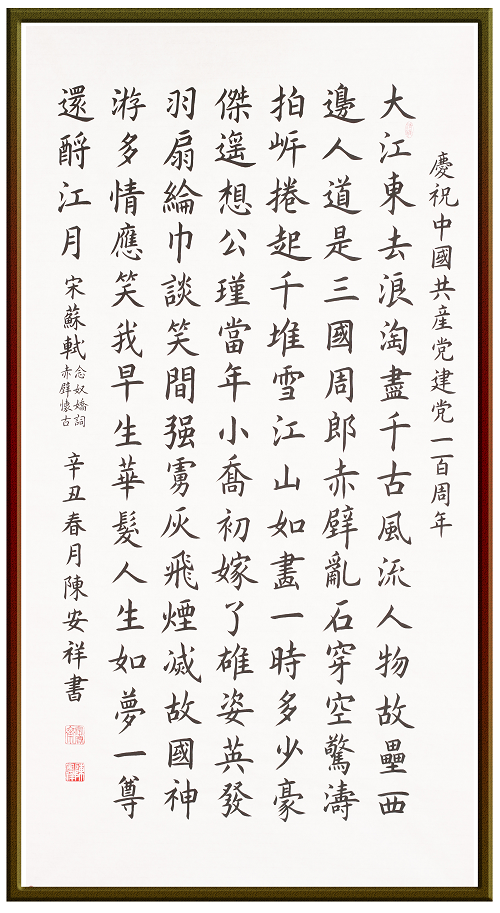 慶祝中國共産党建党一百周年
大江東去浪淘盡千古風流人物故壘西
邊人道是三國周郎赤壁亂石穿空驚濤
拍岍捲起千堆雪江山如畫一時多少豪
傑遥想公瑾當年小喬初嫁了雄姿英發
羽扇綸巾談笑間强虜灰飛煙滅故國神
游多情應笑我早生華髮人生如夢一尊
還酹江月 宋蘇軾 念奴嬌詞 赤壁懷古 辛丑春月陳安祥書